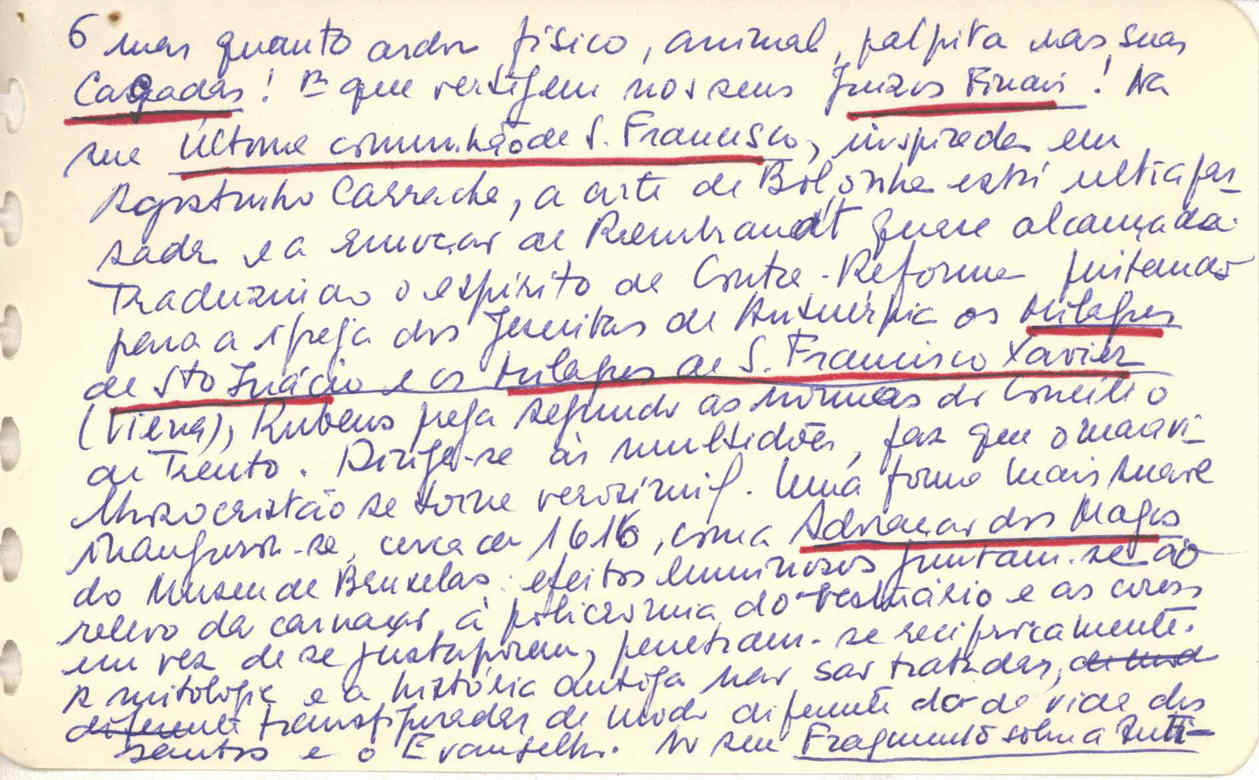 6 mas quanto ardor físico, animal, palpita nas suas
Caçadas! E que vertigem nos seus Juizos Finais! Na
sua Última comunhão de S. Francisco, inspirada em
Agostinho Carrache, a arte de Bolonha está ultrapas-
sada e a emoção de Rembrandt quase alcançada.
Traduzindo o espírito da Contra-Reforma pintando
para a igreja dos Jesuitas de Antuérpia os Milagres
de Sto Inácio e os Milagres de S. Francisco Xavier
(Viena), Rubens prega segundo as normas do Concílio
de Trento. Dirige-se às multidões, faz que o maravi-
lhoso cristão se torne verosimil. Uma forma mais suave
inaugura-se, cerca de 1616, com a Adoração dos Magos
do Museu de Bruxelas: efeitos luminosos juntam-se ao
relevo da carnação, à policromia do vestuário e as cores
em vez de se justaporem, penetram-se reciprocamente.
A mitologia e a história antiga não são tratadas,
transfiguradas de modo diferente do da vida dos
santos e o Evangelho. No seu Fragmento sobre a Anti-